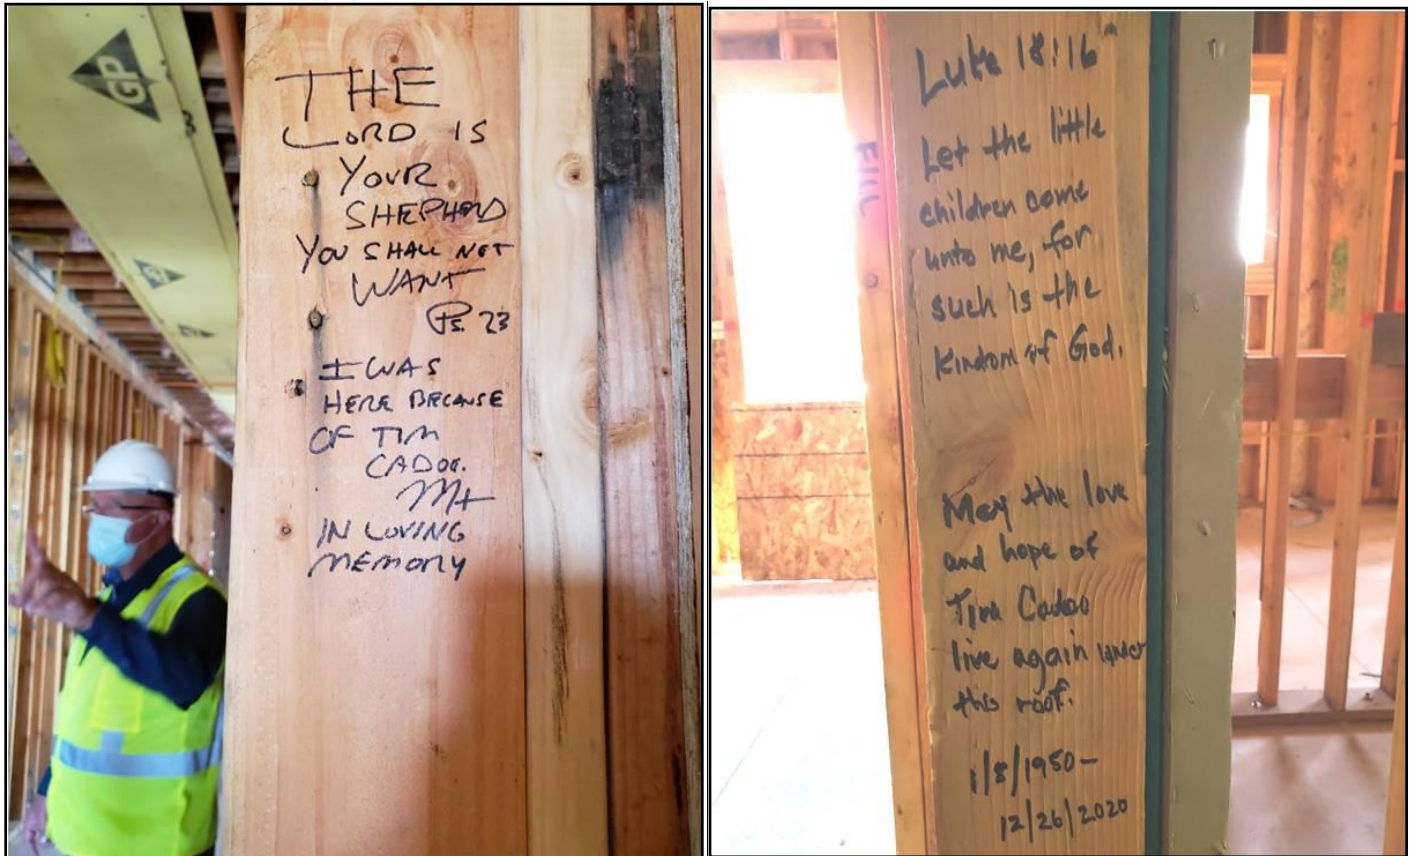 GP
THE
LORD IS
YOUR
SHEPHERD
YOU SHALL NOT
WANT
Ps. 23
I WAS
HERE BECAUSE
OF TIM
CADOG.
IN LOVING
MEMORY
FILL
Luke 18:16
Let the little
children come
unto me, for
such is the
Kindom of God.
May the love
and hope of
Tim Cadoo
live again under
this roof.
1/8/1950-
12/26/2020